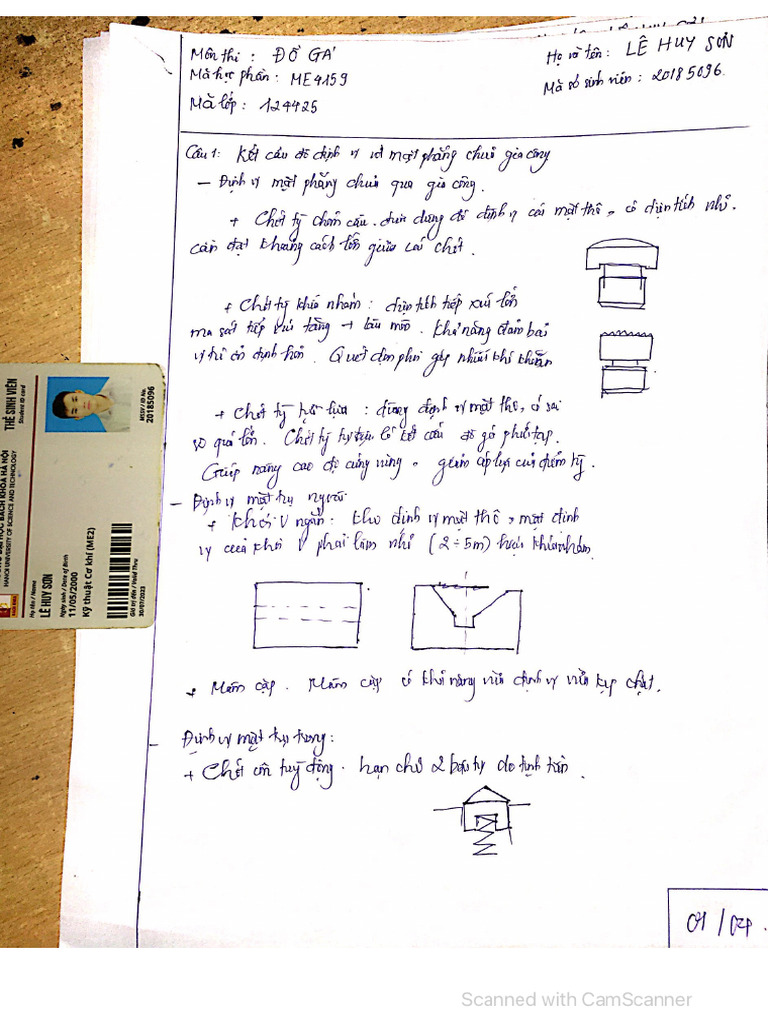 Môn thi : ĐỒ GÁ
Mã học phần : ME4159
Mã lớp : 124425
Họ và tên : LÊ HUY SƠN
Mã số sinh viên : 20185096.
Câu 1: Kết cấu đồ định vị với mặt phẳng chưa gia công
– Định vị mặt phẳng chưa qua gia công.
+ Chốt tỳ chỏm cầu. dùng để định vị các mặt thô, có diện tích nhỏ.
cần đạt khoảng cách lớn giữa các chốt.
+ Chốt tỳ khía nhám : diện tích tiếp xúc lớn
ma sát tiếp xúc tăng → lâu mòn. Khả năng đảm bảo
vị trí ổn định hơn. Quét dọn phoi gặp nhiều khó khăn
+ Chốt tỳ tự lựa : dùng định vị mặt thô, có sai
số quá lớn. Chốt tỳ tự lựa có kết cấu đồ gá phức tạp.
Giúp nâng cao độ cứng vững, giảm áp lực của điểm tỳ.
– Định vị mặt trụ ngoài
+ Khối V ngắn : khi định vị mặt thô, mặt định
vị của khối V phải làm nhỏ (2 ÷ 5m) hoặc khía nhám.
+ Mâm cặp. Mâm cặp có khả năng vừa định vị vừa kẹp chặt.
– Định vị mặt trụ trong :
+ Chốt côn tuỳ động. hạn chế 2 bậc tự do tịnh tiến.
01 / 04
THẺ SINH VIÊN
Student ID card
BÁCH KHOA HÀ NỘI
HANOI UNIVERSITY OF SCIENCE AND TECHNOLOGY
MSSV / ID No.
20185096
Họ tên / Name
LÊ HUY SƠN
Ngày sinh / Date of Birth
11/05/2000
Kỹ thuật Cơ khí (ME2)
Giá trị đến / Valid Thru
30/07/2023
Scanned with CamScanner